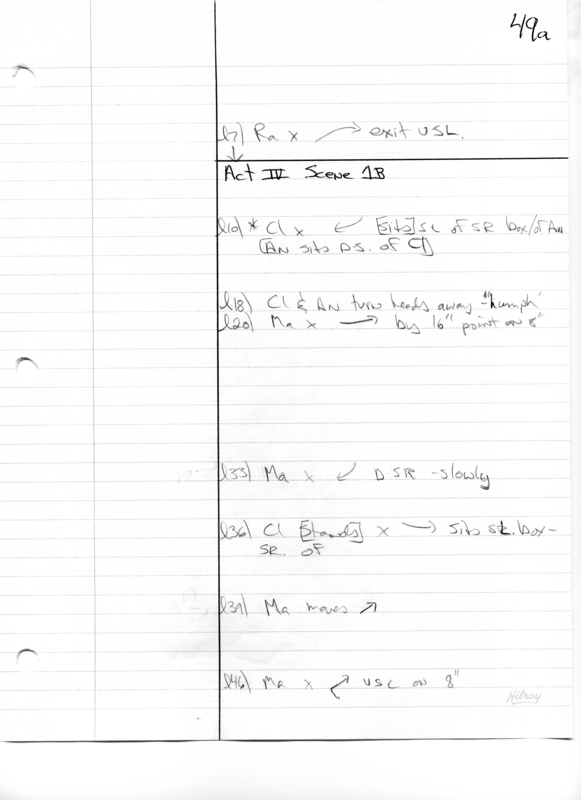 49a
l7) Ra x → exit USL.
↓
Act IV Scene 1B
l10) * Cl x ↙ [Sits] SL of SR box/of AN
[AN sits D.S. of Cl]
l18) Cl & AN turn heads away - "humph"
l20) Ma x → by 16" point on 8"
l33) Ma x ↙ DSR - slowly
l36) Cl [Stands] x → sits box -
SR. of
l39) Ma moves ↗
l46) Ma x ↗ USC on 8"
Hilroy